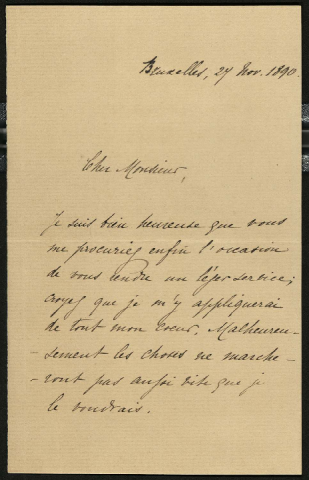 Bruxelles, 27 Nov. 1890.
Cher Monsieur,
Je suis bien heureuse que vous
me procuriez enfin l'occasion
de vous rendre un léger service;
croyez que je m'y appliquerai
de tout mon coeur. Malheureu-
-sement les choses ne marche-
-ront pas aussi vite que je
le voudrais.